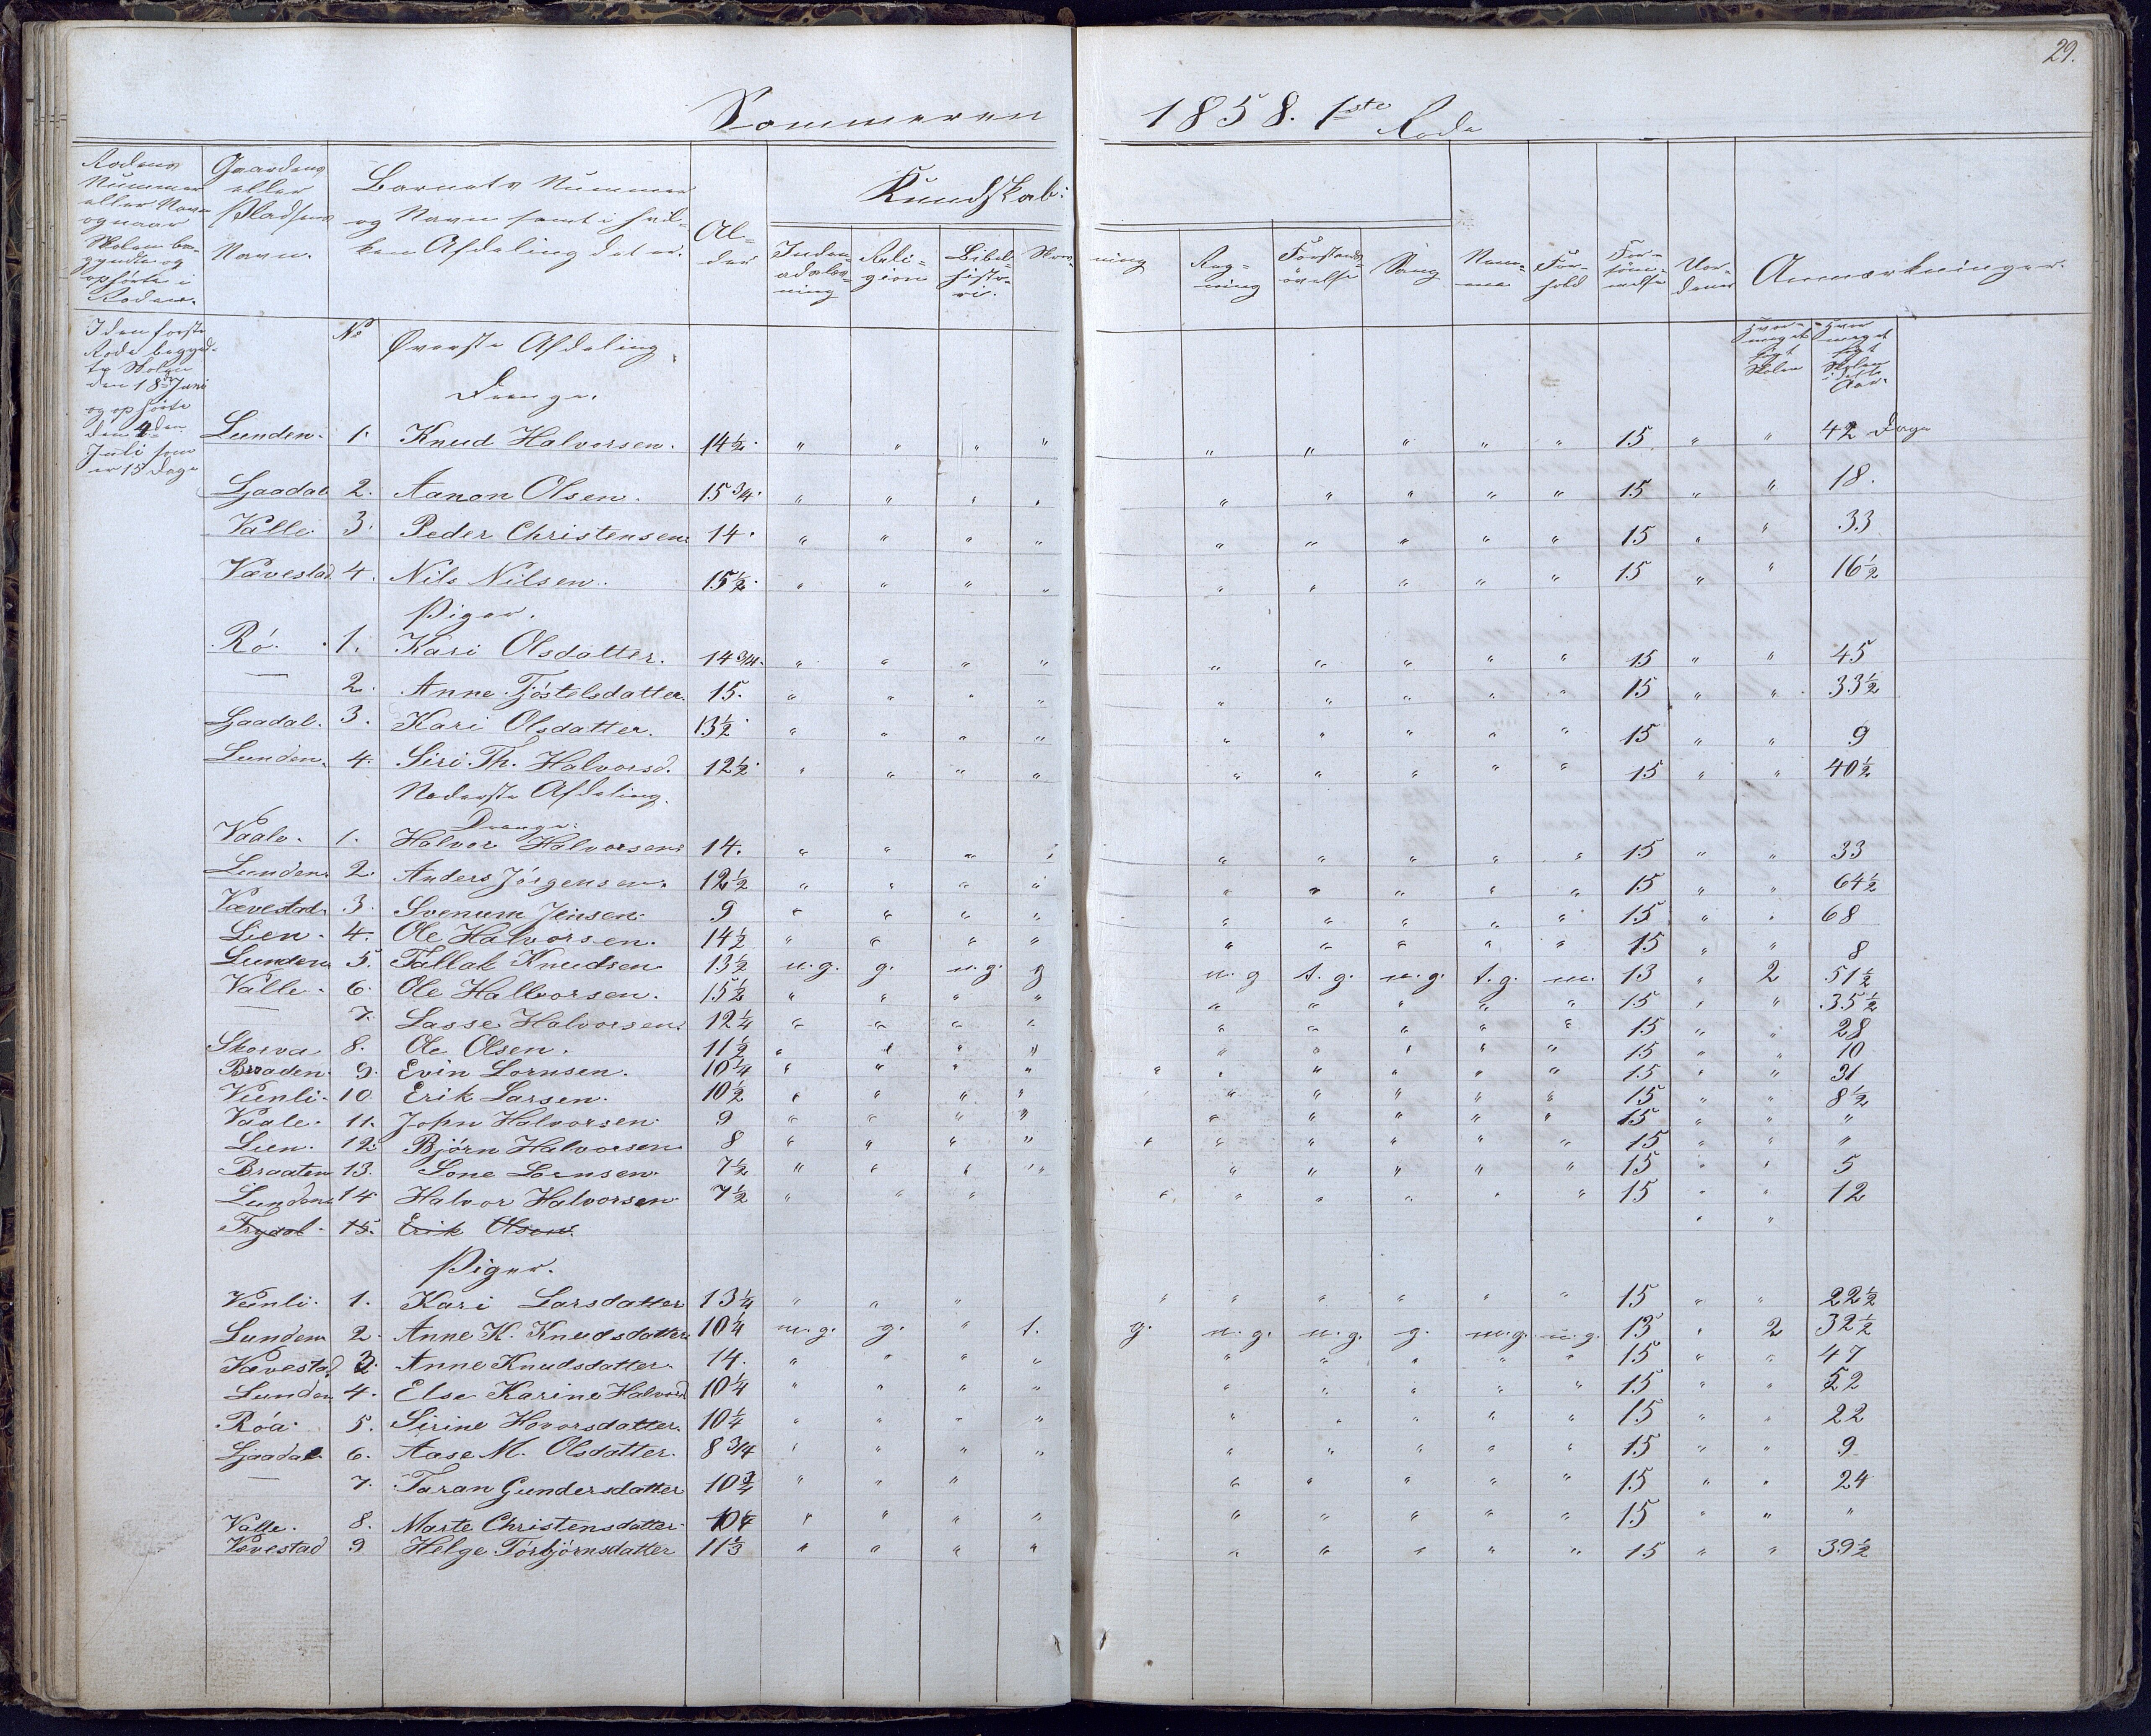 29.
Sommeren 1858. 1ste Rode
Rodens Nummer eller Navn og naar Skolen begyndte og ophørte i Roden.
Gaardens eller Pladsens Navn.
Barnets Nummer og Navn samt i hvilken Afdeling det er.
Alder
Kundskab:
Indenadslæsning
Religion
Bibelhistorie.
Skrivning
Regning
Forstandsøvelse
Sang
Nemme
Forhold
Forsømmelse
Anmærkninger.
I den første Rode begyndte Skolen den 18de Juni og ophørte den 4den Juli som er 15 Dage
Hvor meget søgt Skolen
Hvor meget søgt Skolen i dette Aar.
No Øverste Afdeling.
Drenge.
Lunden. 1. Knud Halvorsen. 14½. " " " " " " " " " 15 " " 42 Dage
Ljaadal 2. Aanon Olsen. 15 3/4. " " " " " " " " " 15 " " 18.
Valle 3. Peder Christensen. 14. " " " " " " " " " 15 " " 33
Vævestad 4. Nils Nilsen. 15½. " " " " " " " " " 15 " " 16½
Piger.
Rö. 1. Kari Olsdatter. 14 3/4. " " " " " " " " " 15 " " 45
— 2. Anne Tjöstelsdatter. 15. " " " " " " " " " 15 " " 33½
Ljaadal. 3. Kari Olsdatter. 13½. " " " " " " " " " 15 " " 9
Lunden. 4. Siri Th. Halvorsd. 12½. " " " " " " " " " 15 " " 40½
Nederste Afdeling.
Drenge.
Vaale. 1. Halvor Halvorsen. 14. " " " " " " " " " 15 " " 33
Lunden. 2. Anders Jörgensen. 12½ " " " " " " " " " 15 " " 64½
Vævestad. 3. Svenum Jensen. 9 " " " " " " " " " 15 " " 68
Lien. 4. Ole Halvorsen. 14½ " " " " " " " " " 15 " " 8
Lunden 5. Tallak Knudsen 13½ m.g. g. m.g. g m.g t.g. m.g. t.g. m. 13 " 2 51½
Valle. 6. Ole Hallvorsen. 15½ " " " " " " " " " 15 " " 35½
— 7. Lasse Halvorsen. 12¼ " " " " " " " " " 15 " " 28
Skorva 8. Ole Olsen. 11½ " " " " " " " " " 15 " " 10
Braaden. 9. Evin Lornsen. 10¼ " " " " " " " " " " 15 " " 31
Veenli. 10. Erik Larsen. 10½ " " " " " " " " " 15 " " 8½
Vaale. 11. John Halvorsen. 9 " " " " " " " " " 15 " " "
Lien. 12. Björn Halvorsen 8 " " " " " " " " " " 15 " " "
Braaten 13. Lone Lornsen. 7½ " " " " " " " " " 15 " " 5
Lunden 14. Halvor Halvorsen. 7½ " " " " " " " " " 15 " " 12
Trydal. 15. Erik Olsen. " "
Piger.
Veenli. 1. Kari Larsdatter 13¼ " " " " " " " " " 15 " " 22½
Lunden 2. Anne K. Knudsdatter 10¼ m.g. g. " t. g. m.g. m.g. g. m.g. m.g. 13 " 2 32½
Vævestad 3. Anne Knudsdatter. 14. " " " " " " " " " 15 " " 47
Lunden 4. Else Karine Halvorsd 10¼ " " " " " " " " " 15 " " 52
Röa. 5. Sirine Hovorsdatter. 10¼ " " " " " " " " " 15 " " 22
Ljaadal 6. Aase M. Olsdatter. 8 3/4 " " " " " " " " " 15 " " 9
— 7. Taran Gundersdatter 10 3/4 " " " " " " " " 15 " " 24
Valle. 8. Marte Christensdatter 10¼ " " " " " " " " " 15 " " "
Vævestad 9 Helge Törbjörnsdatter 11⅓ " " " " " " " " " 15 " " 39½